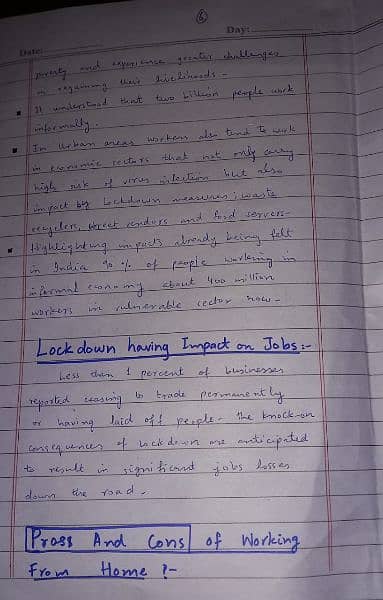 6
Date: Day:
poverty and experience greater challenges
in regaining their livelihoods -
It understood that two billion people work
informally.
In Urban areas workers also tend to work
in economic sectors that not only carry
high risk of virus infection but also
impact by Lockdown measures; waste
recyclers, street vendors and food servers-
Highlighting impacts already being felt
in India 90 % of people working in
informal economy about 400 million
workers in vulnerable sector now-
Lockdown having Impact on Jobs:-
Less than 1 percent of businesses
reported ceasing to trade permanently
or having laid off people- The knock-on
consequences of lockdown are anticipated
to result in significand jobs losses
down the road-
Pross And Cons of Working
From Home :-